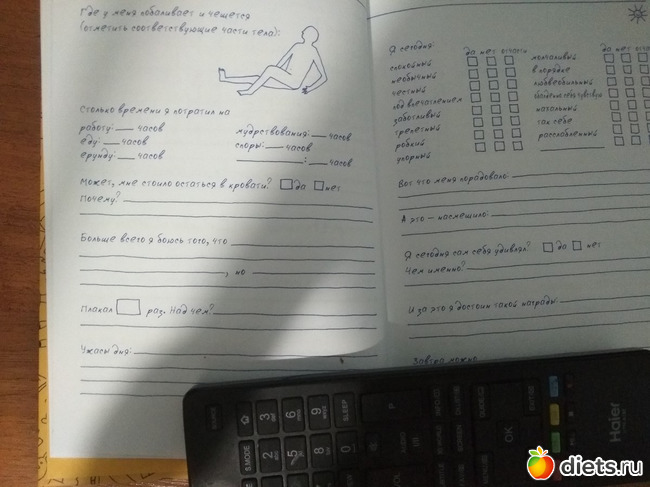 Где у меня побаливает и чешется
(отметить соответствующие части тела):
Сколько времени я потратил на
работу: часов
еду: часов
ерунду: часов
мудрствования: часов
споры: часов
: часов
Может, мне стоило остаться в кровати? да нет
Почему?
Больше всего я боюсь того, что
, но
Плакал раз. Над чем?
Ужасы дня:
Я сегодня: да нет отчасти
спокойный
необычный
честный
под впечатлением
заботливый
трепетный
робкий
упорный
да нет отчасти
молчаливый
в порядке
любвеобильный
нахальный
так себе
расслабленный
Вот что меня порадовало:
А это – насмешило:
Я сегодня сам себя удивлял? да нет
Чем именно?
И за это я достоин такой награды:
Завтра можно
S.MODE
3
6
9
SLEEP
2
5
8
0
P
OK
VOL
Haier
diets.ru